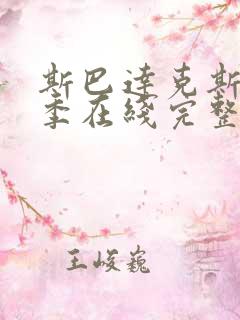 斯巴达克斯
季在线完整
王峻巍